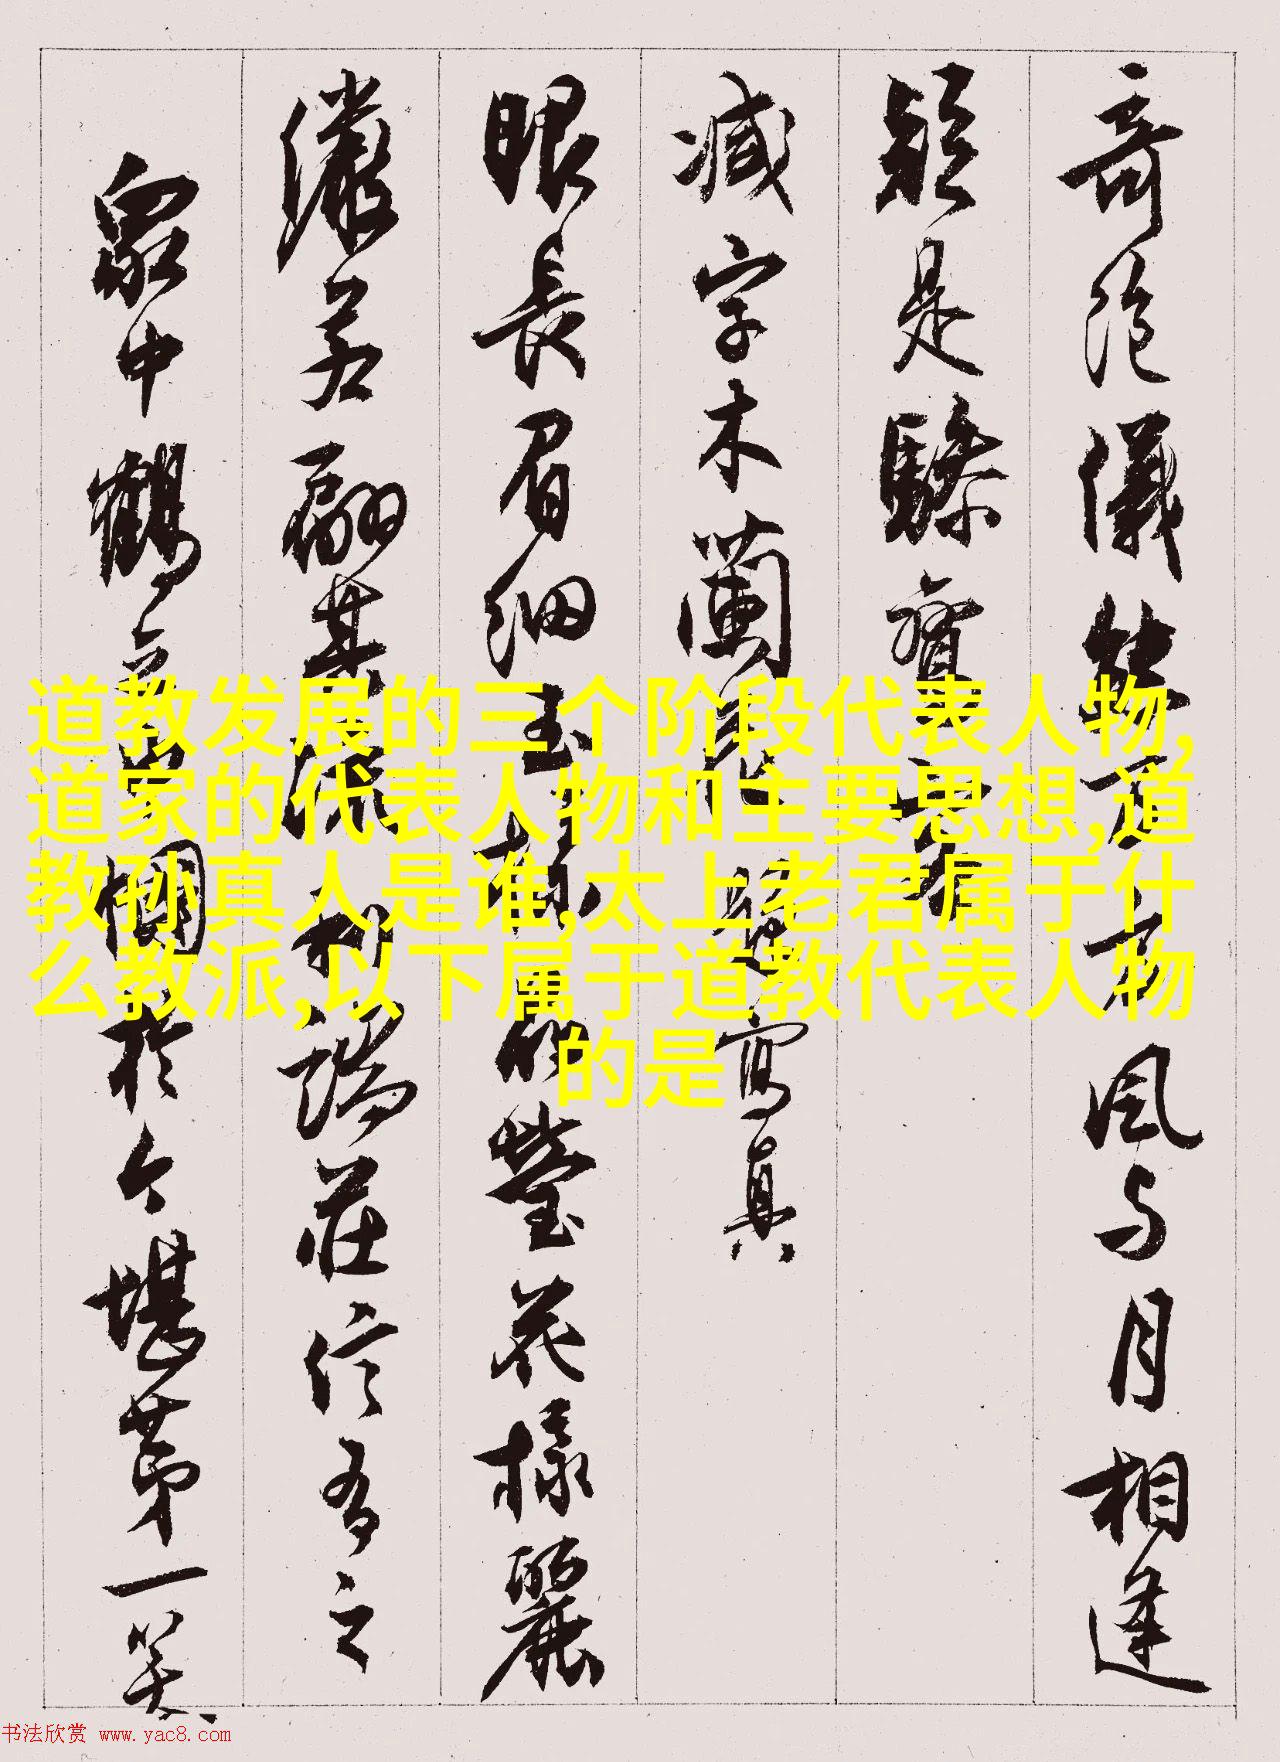 奇絶儀能西子
風与月相逢
疑是驂鸞
减字木蘭花
寫真
眼長眉細玉
瑩花樣麗
濃若
端莊信有之
衆中鶴立
於今堪第一笑
道教发展的三个阶段代表人物,
道家的代表人物和主要思想,道
教孙真人是谁,太上老君属于什
么教派,以下属于道教代表人物
的是
书法欣赏 www.yac8.com